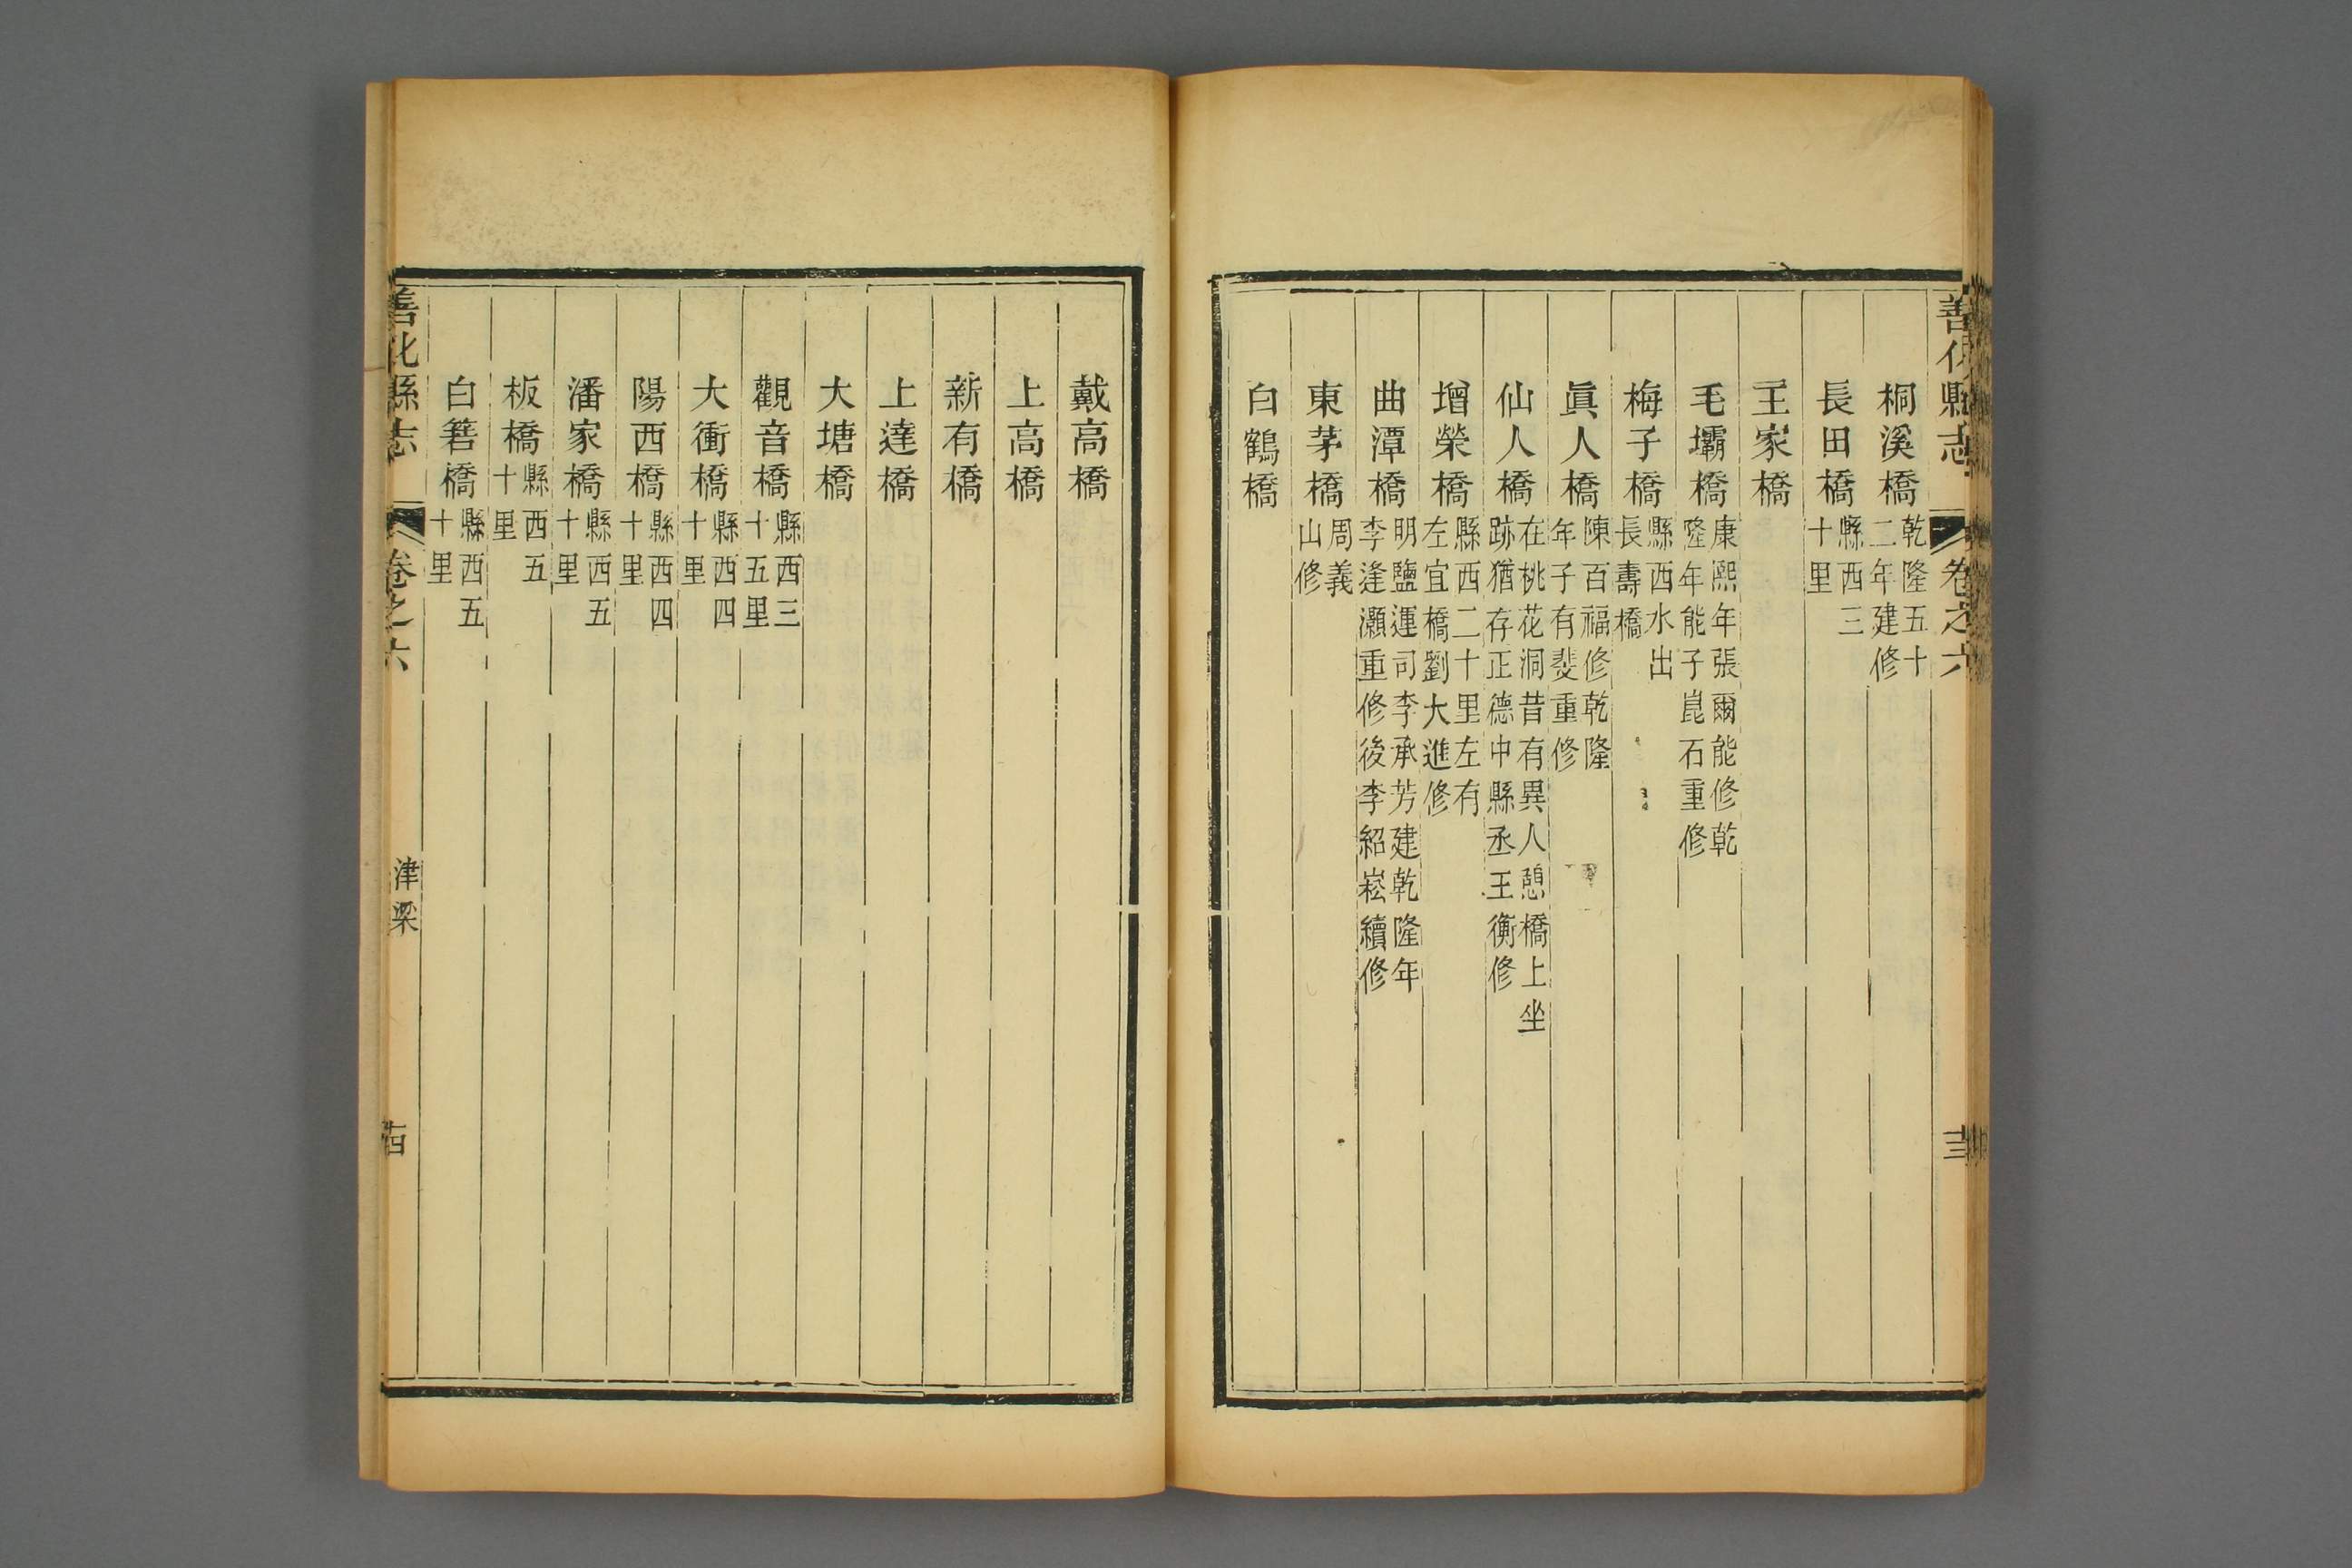 善化縣志 卷之六
桐溪橋 乾隆五十二年建修
長田橋 縣西三十里
王家橋
毛壩橋 康熙年張爾能修乾隆年能子崑石重修
梅子橋 縣西水出長壽橋
眞人橋 陳百福修乾隆年子有斐重修
仙人橋 在桃花洞昔有異人憩橋上坐跡猶存正德中縣丞王衡修
增榮橋 縣西二十里左有左宜橋劉大進修
曲潭橋 明鹽運司李承芳建乾隆年李逢灝重修後李紹崧續修
東茅橋 周義山修
白鶴橋
戴高橋
上高橋
新有橋
上達橋
大塘橋
觀音橋 縣西三十五里
大衝橋 縣西四十里
陽西橋 縣西四十里
潘家橋 縣西五十里
板橋 縣西五十里
白箬橋 縣西五十里
善化縣志 卷之六 津梁